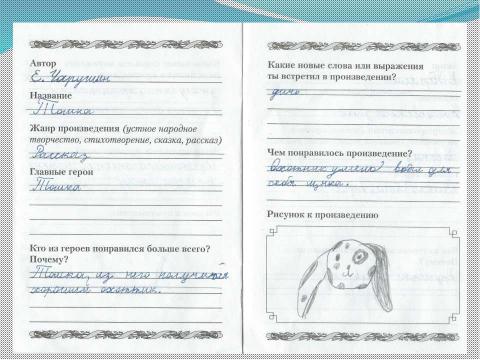 Автор
Е. Чарушин
Название
Томка
Жанр произведения (устное народное
творчество, стихотворение, сказка, рассказ)
Рассказ
Главные герои
Томка
Кто из героев понравился больше всего?
Почему?
Томка, из него получится
хороший охотник.
Какие новые слова или выражения
ты встретил в произведении?
дичь
Чем понравилось произведение?
Охотник для
себя щенка.
Рисунок к произведению